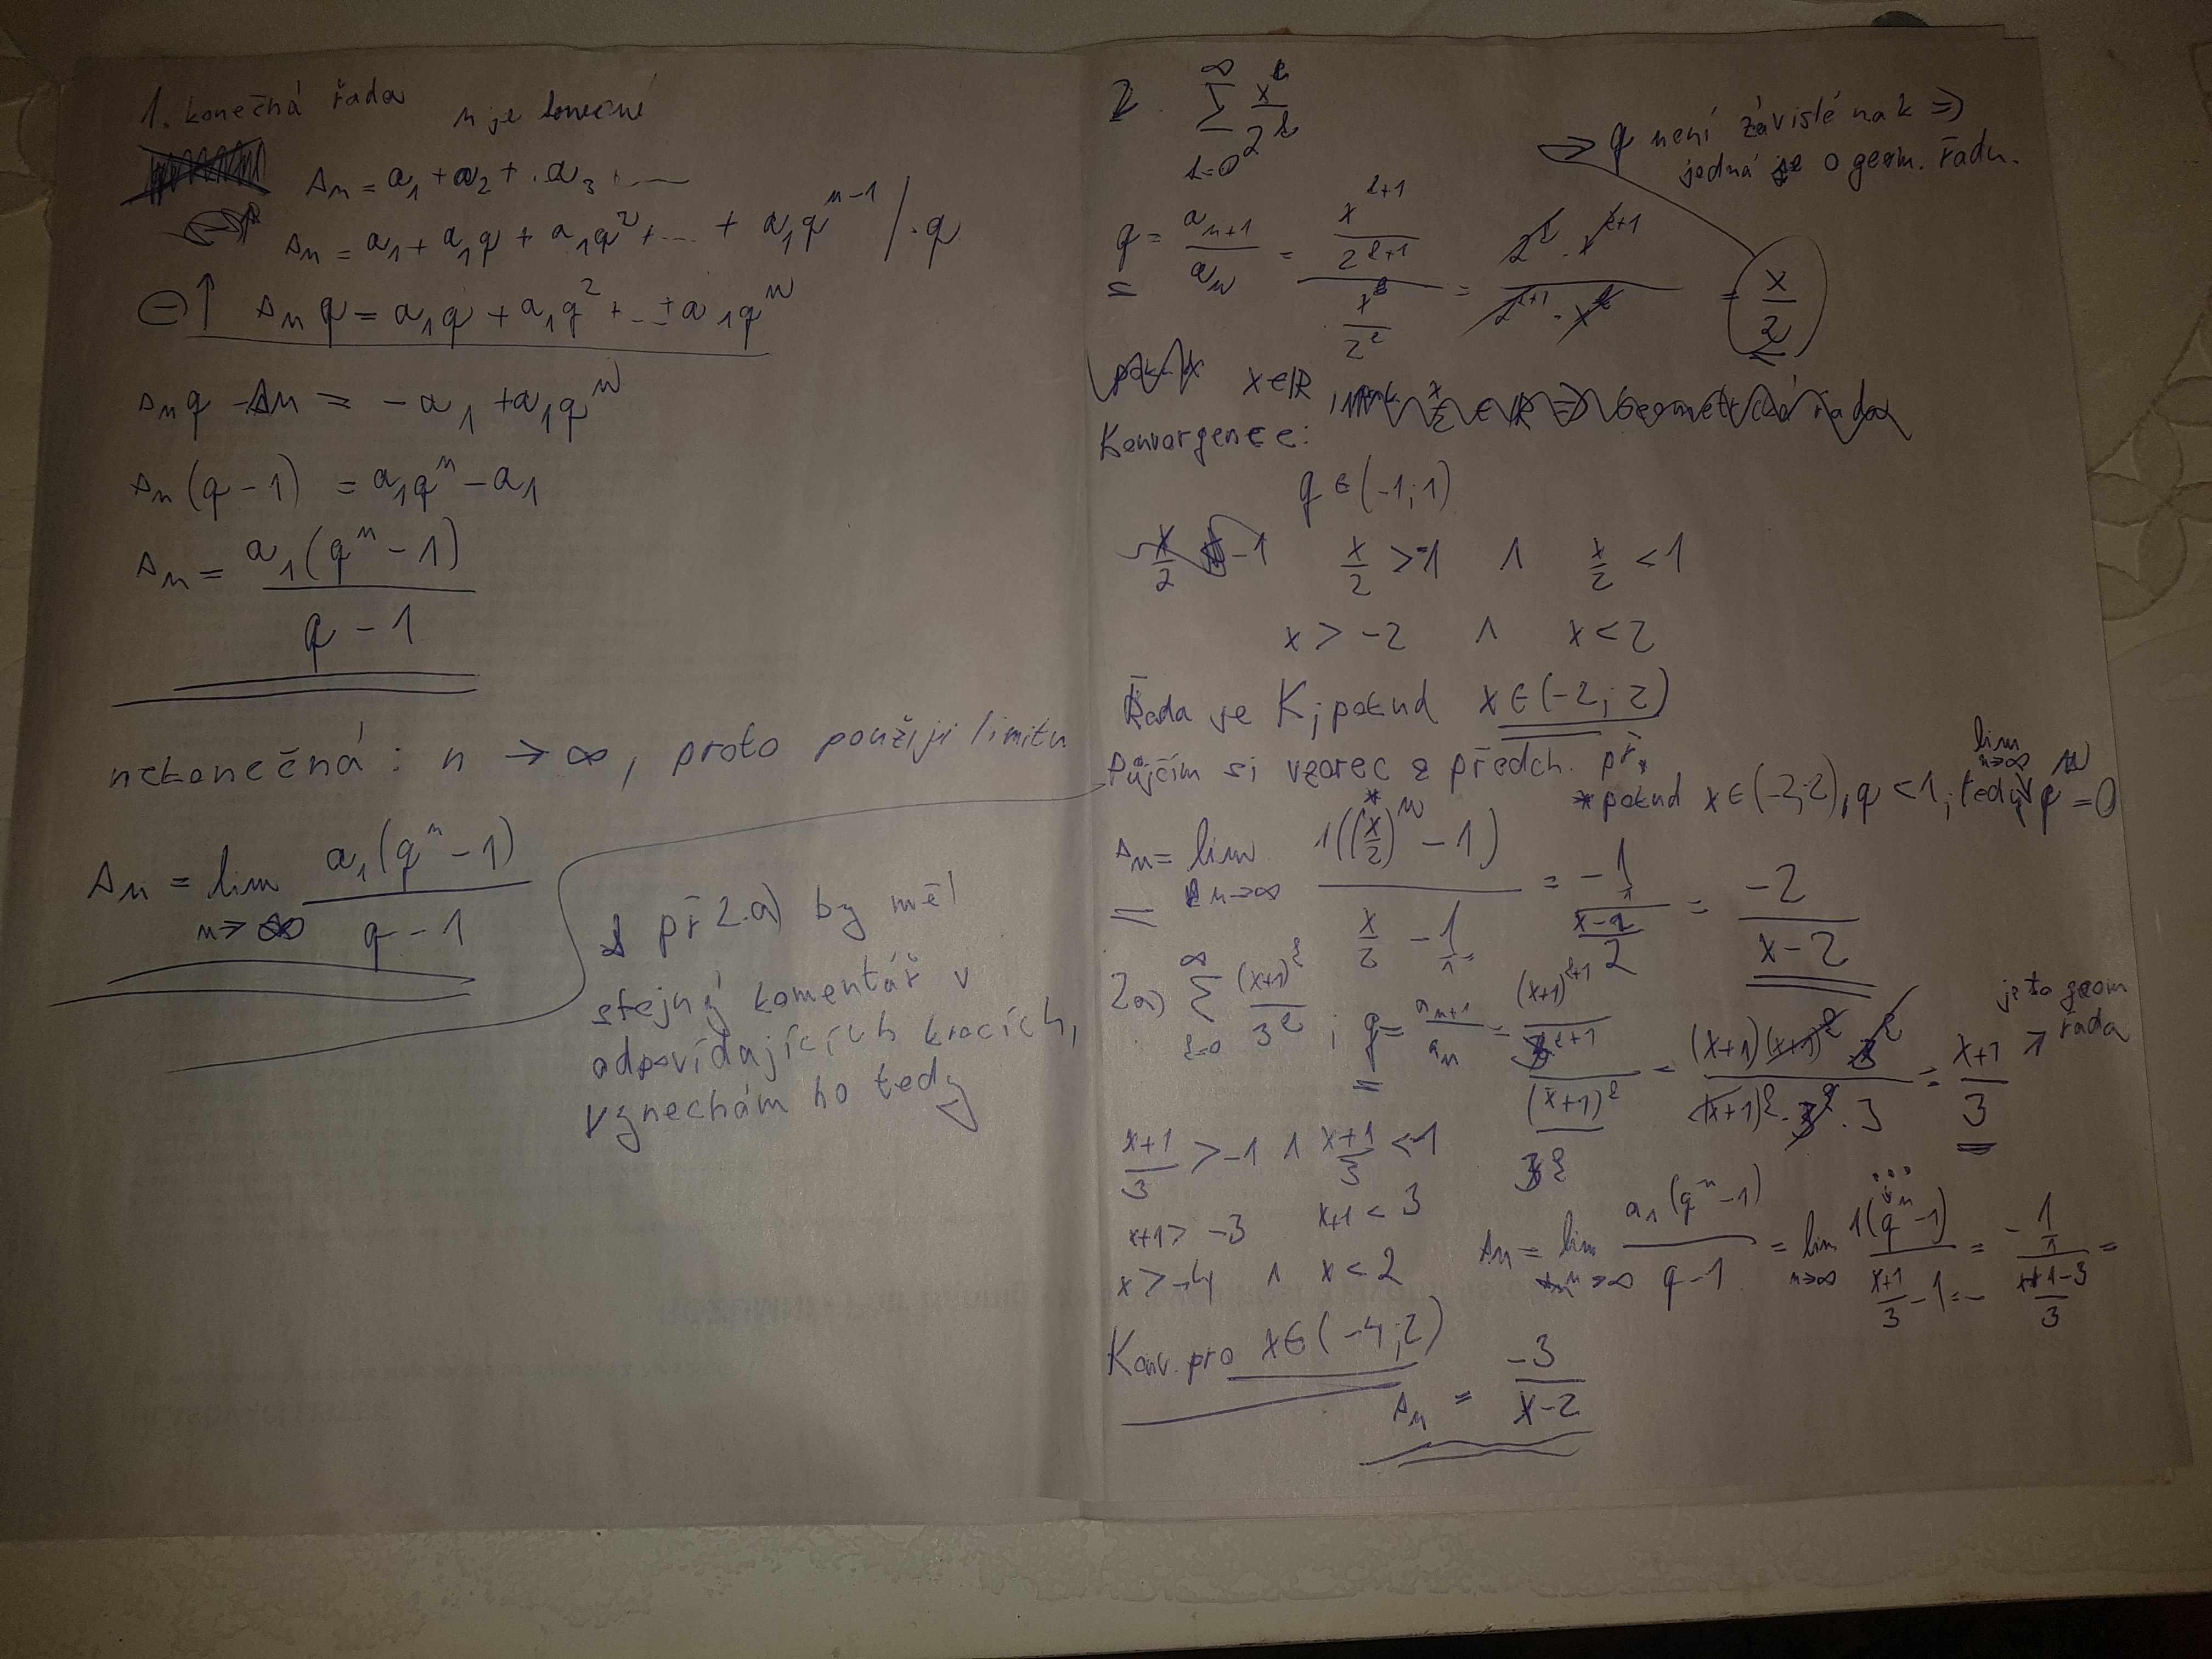 1. konečná řada n je konečné
s_n = a_1 + a_2 + . a_3 + ...
s_n = a_1 + a_1q + a_1q^2 + ... + a_1q^{n-1} / · q
⊖↑ s_n q = a_1q + a_1q^2 + ... + a_1q^n
s_n q - s_n = -a_1 + a_1q^n
s_n (q - 1) = a_1q^n - a_1
s_n = \frac{a_1(q^n - 1)}{q - 1}
nekonečná : n → ∞, proto použiji limitu
s_n = lim_{n→∞} \frac{a_1(q^n - 1)}{q - 1}
př 2.a) by měl
stejný komentář v
odpovídajících krocích,
vynechám ho tedy
2. ∑_{k=0}^{∞} \frac{x^k}{2^k}
⇒ q není závislé na k ⇒
jedná se o geom. řadu.
q = \frac{a_{n+1}}{a_n} = \frac{\frac{x^{k+1}}{2^{k+1}}}{\frac{x^k}{2^k}} = \frac{2^k · x^{k+1}}{2^{k+1} · x^k} = \frac{x}{2}
x∈ℝ
Konvergence:
q ∈ (-1; 1)
\frac{x}{2} > -1 ∧ \frac{x}{2} < 1
x > -2 ∧ x < 2
Řada je K, pokud x ∈ (-2; 2)
Půjčím si vzorec z předch. př.
* pokud x ∈ (-2; 2), q < 1, tedy lim_{n→∞} q^n = 0
s_n = lim_{n→∞} \frac{1((\frac{x}{2})^{n*} - 1)}{\frac{x}{2} - \frac{1}{1}} = \frac{-\frac{1}{1}}{\frac{x-2}{2}} = \frac{-2}{x-2}
2a) ∑_{k=0}^{∞} \frac{(x+1)^k}{3^k} ; q = \frac{a_{n+1}}{a_n} = \frac{\frac{(x+1)^{k+1}}{3^{k+1}}}{\frac{(x+1)^k}{3^k}} = \frac{(x+1)(x+1)^k 3^k}{(x+1)^k · 3^k · 3} = \frac{x+1}{3} ↗ je to geom řada
\frac{x+1}{3} > -1 ∧ \frac{x+1}{3} < 1
x+1 > -3 x+1 < 3
x > -4 ∧ x < 2
s_n = lim_{n→∞} \frac{a_1(q^n - 1)}{q - 1} = lim_{n→∞} \frac{1(q^n - 1)}{\frac{x+1}{3} - 1} = \frac{-\frac{1}{1}}{\frac{x+1-3}{3}} =
Konv. pro x ∈ (-4; 2)
s_n = \frac{-3}{x-2}